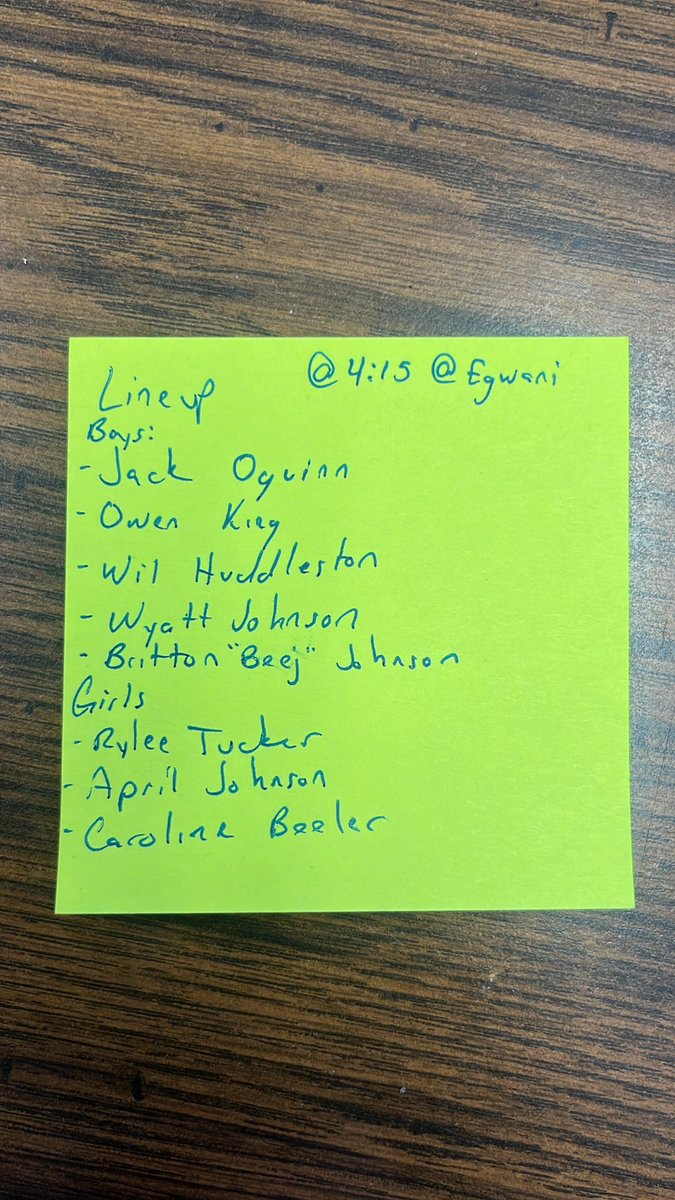 Lineup @ 4:15 @ Egwani
Boys:
- Jack Oquinn
- Owen King
- Wil Huddleston
- Wyatt Johnson
- Britton "Beej" Johnson
Girls
- Rylee Tucker
- April Johnson
- Caroline Beeler